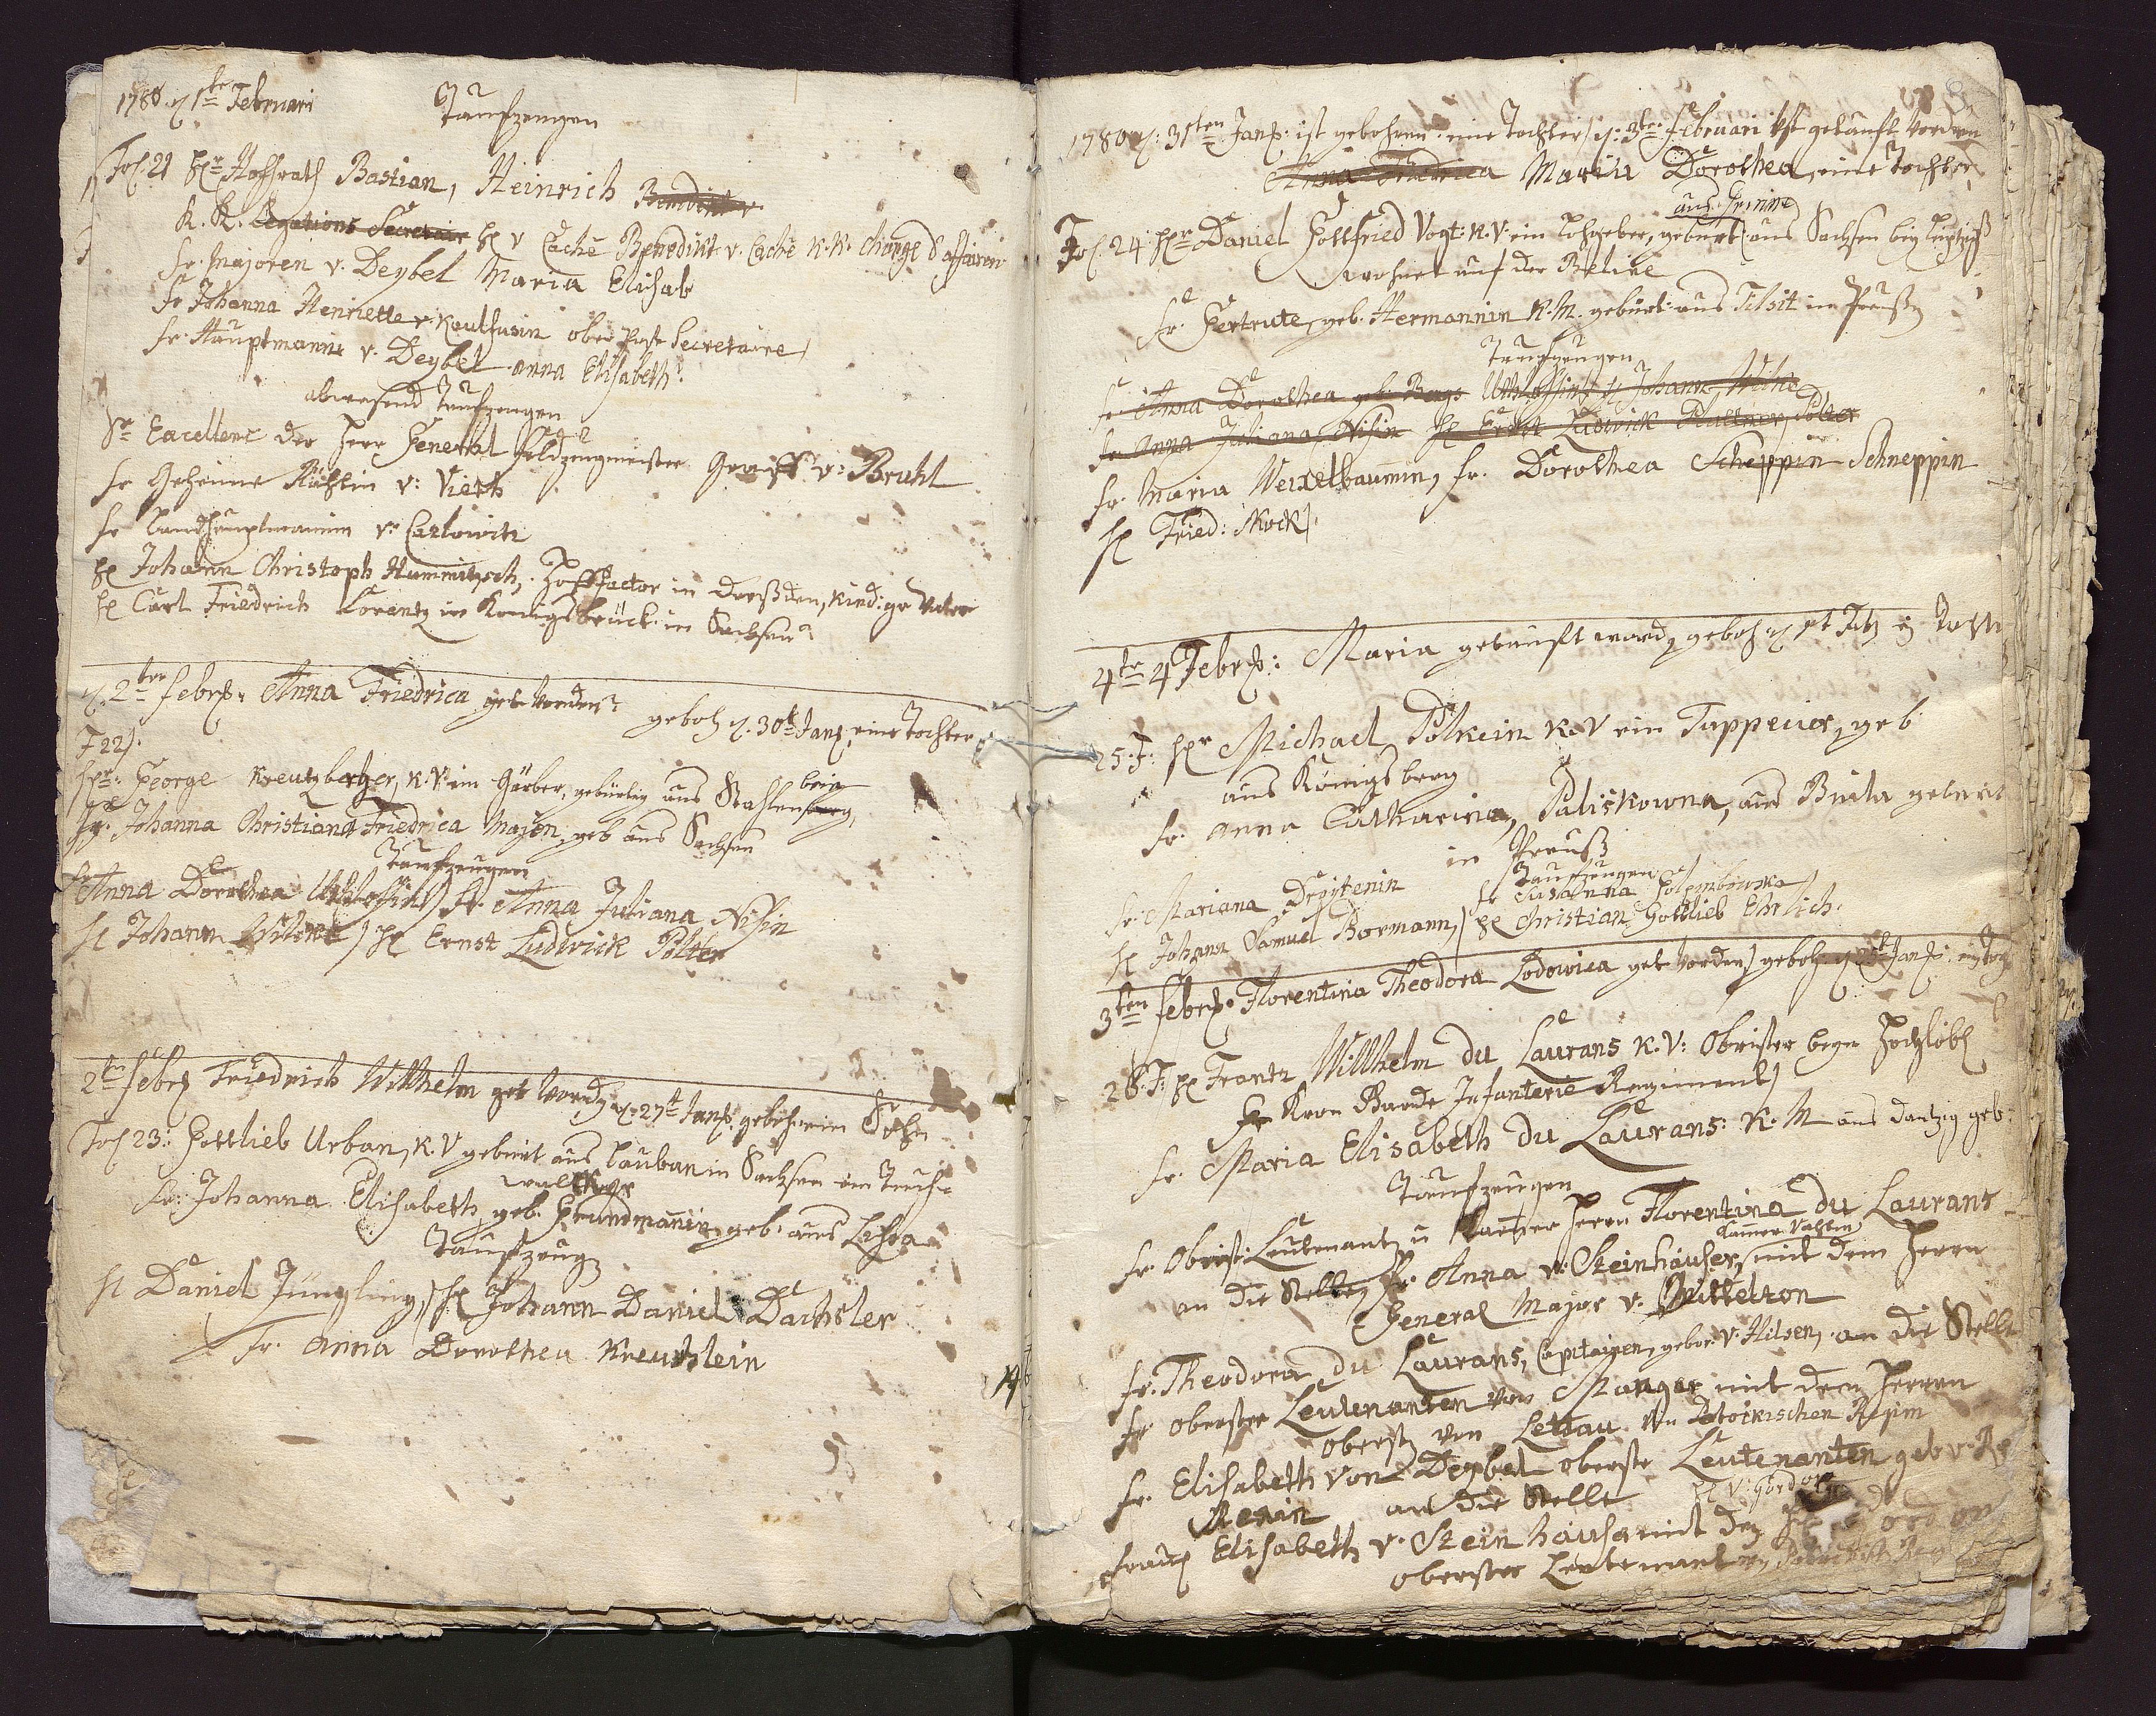 1780 d 1te Februari
Taufzeugen
Fol. 21 Hr Hoffrath Bastian, Heinrich Benedikt v.
K. K. Legations Secretair H v Caché Benedikt v. Caché K. K. Charge d'affairen
Fr. Majoren v. Deybel Maria Elisab
Fr Johanna Henriette v. Kaulfusin ober Post Secretaire
Fr. Hauptmannin v. Deybel Anna Elisabeth
abwesend Taufzeugen
Sr Excellenc der Herr General Feldzeugmeister Graff v: Bruhl
Fr Geheime Räthin v: Vieth
Fr Landhauptmannin v: Carlowitz
H Johann Christoph Hummitzsch, Hoffactor in Dreßden, Kind: gr Vater
H Carl Friedrich Lorentz in Konigsbrück in Sachsen
d. 2ten Febr: Anna Friedrica get worden geboh d. 30t Jan: eine Tochter
F 22.
Hr: George Kreutzberger, K. V. ein Gärber, gebürtig aus Stahlenberg, brig
Fr. Johanna Christiana Friedrica Majen, geb aus Sachsen
Taufzeugen
Fr Anna Dorothea Uthloffin, Fr. Anna Juliana Nisin
H Johann Wilke, H Ernst Ludwick Polter
2ten Febr Friedrich Willhelm get word d. 27t Jan: geboh: ein Sohn
Fol 23: Gottlieb Urban, K. V gebürt aus Lauban in Sachsen ein Tuch-
walker
Fr: Johanna Elisabeth geb. Grundmanin geb. aus Lissa
Taufzeug
H Daniel Jüngling, H Johann Daniel Dachsler
Fr. Anna Dorothea Kreutzlein
1780 d: 31ten Jan: ist gebohren eine Tochter, d: 3te Februari ist getauft worden
Anna Friedrica Maria Dorothea, eine Tochter
aus Grimme
Fol. 24 Hr Daniel Gottfried Vogt: K. V. ein Lohgeber, gebürt: aus Sachsen bey Leiptzig
wohnet auf der Beline
Fr. Gertrute, geb. Hermannin K. M. gebürt: aus Tilsit in Preuß
Taufzeugen
Fr Anna Dorothea geb. Uthloffin H Johann Wilke
Fr Anna Juliana Nisin H Ernst Ludwick Polter
Fr. Maria Weixelbaumin, Fr. Dorothea Scheppin Schneppin
H Fried: Mock
4te 4 Febr: Maria getauft word, geboh d 1t
25. F: Hr Michael Polkein K. V ein Tappecier, geb.
aus Königsberg
Fr. Anna Catharina, Paliskowna, aus Biala gebürt
in Preuß
Taufzeugen
Fr. Mariana Fr Susanna Golembowska
H Johann Samuel Bormann, H Christian Gottlieb Ehrlich.
3ten Febr: Florentina Theodora Lodowica get worden, geboh: d 25t Jan:
28. F: H Frantz Willhelm du Laurans K. V: Obrister beym Hochlobl
Kron Garde Infanterie Regiment
Fr. Maria Elisabeth du Laurans: K. M aus Dantzig geb:
Taufzeugen
Fr. Obrist: Leutenant u Kamer Herrn Florentina du Laurans
an die Stelle, Fr. Anna v. Steinhauser, mit dem Herrn
General Major v. Wittelzon
Fr. Theodora du Laurans, Capitainen, gebor v: Hilsen, an die Stelle
Fr oberster Leutenanten von Manger mit dem Herrn
oberst von Lettau Potockischen Regim
Fr. Elisabeth von Deybel oberste Leutenanten geb v: Re
Renin an die Stelle H v: Gordon
Frau Elisabeth v. Steinhauser mit dem H
oberster Leutenant